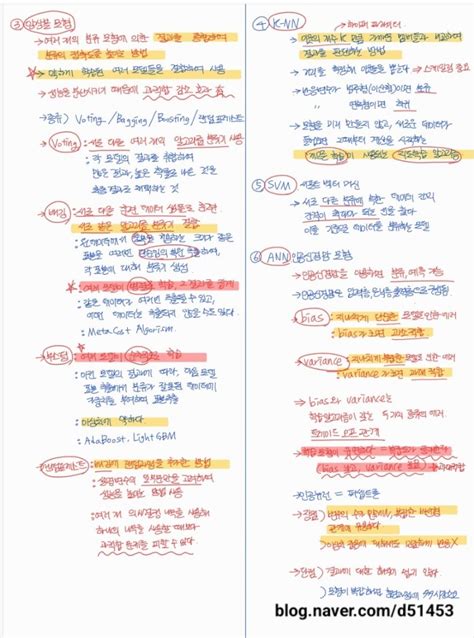 ③ 앙상블 모형
→ 여러 개의 분류 모형에 의한 결과를 종합하여
분류의 정확도를 높이는 방법
→ 약하게 학습된 여러 모델들을 결합하여 사용
→ 성능을 분산시키기 때문에 과적합 감소 효과
→ 종류) Voting / Bagging / Boosting / 랜덤포레스트
→ Voting : 서로 다른 여러 개의 알고리즘 분류기 사용
: 각 모델의 결과를 취합하여
많은 결과, 높은 확률로 나온 것을
최종 결과로 채택하는 것
→ 배깅 : 서로 다른 훈련 데이터 샘플로 훈련,
서로 같은 알고리즘 분류기 결합
: 원데이터에서 크기가 같은
표본을 여러번 단순임의 복원추출하여
각 표본에 대해 분류기 생성
: 여러 모델이 병렬로 학습, 그 결과를 집계
: 같은 데이터가 여러번 추출될 수 있고,
어떤 데이터는 추출되지 않을 수도 있다.
: MetaCost Algorism
→ 부스팅 : 여러 모형이 순차적으로 학습
: 이전 모델의 결과에 따라, 다음 모델
표본 추출에서 분류가 잘못된 데이터에
가중치를 부여하여 표본추출
: 이상치에 약하다.
: AdaBoost, LightGBM
→ 랜덤포레스트 : 배깅에 랜덤과정을 추가한 방법
성능을 높인 방법 사용
: 여러 개 의사결정 나무를 사용해
하나의 나무를 사용할 때보다
과적합 문제를 피할 수 있다.
④ K-NN
가까운
결과를 판단하는 방법
거리를 측정해 이웃들을 뽑는다 → 스케일링 중요
→ 반응변수가 범주형(이산형)이면 분류
연속형이면 회귀
→ 모형을 미리 만들지 않고, 새로운 데이터가
들어오면 그때부터 계산을 시작하는
사용되는 지도학습 알고리즘
⑤ SVM 서포트 벡터 머신
→ 서로 다른 분류에 속한 데이터 간의
간격이 최대가 되는 선을 찾아
이를 기준으로 데이터를 분류하는 모델
⑥ ANN 인공신경망 모형
→ 인공신경망을 이용하면 분류, 예측 가능
→ 인공신경망은 입력층, 은닉층, 출력층으로 구성
→ bias : 지나치게 단순한 모델로 인한 에러
: bias가 크면 과소적합
→ variance : 지나치게 복잡한 모델로 인한 에러
: variance가 크면 과대적합
→ bias와 variance는
학습 알고리즘이 갖는 두 가지 종류의 에러
트레이드 오프 관계
(bias 낮고, variance
→ 인공뉴런 = 퍼셉트론
→ 장점)
→ 단점) 결과에 대한 해석이 쉽지 않다
blog.naver.com/d51453